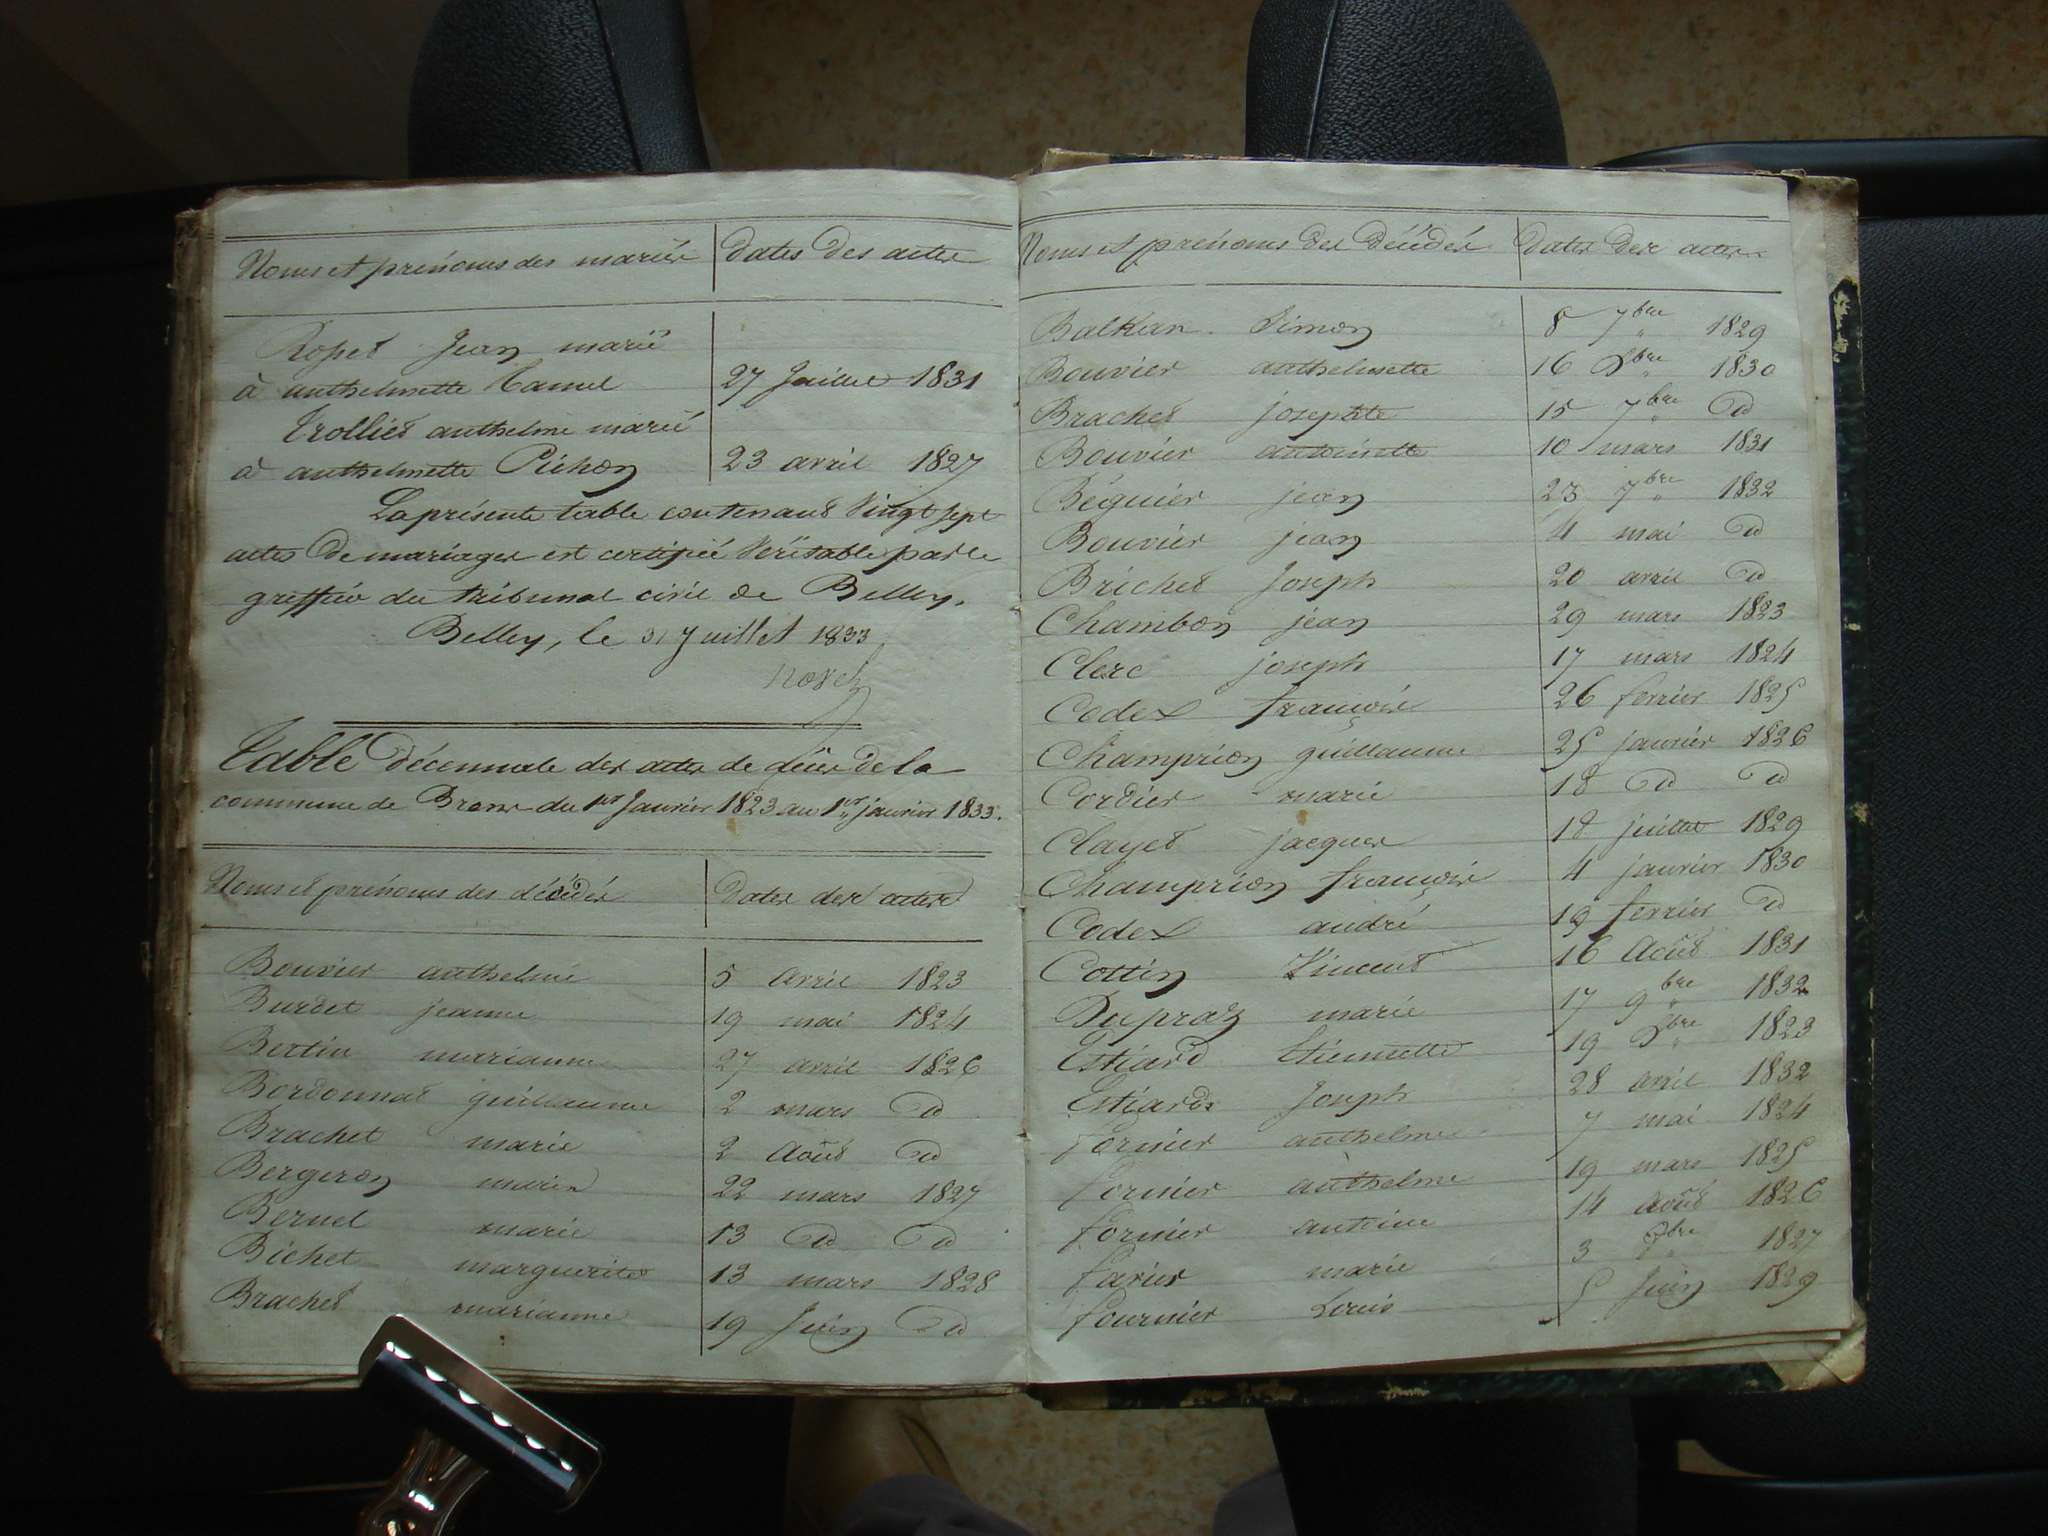 Noms et prénoms des mariés Dates des actes
Ropet Jean marié
à anthelmette Camel 27 Juillet 1831
Trolliet anthelme marié
à anthelmette Pichon 23 avril 1827
La présente table contenant vingt sept
actes de mariages est certifiée véritable par le
greffier du tribunal civil de Belley.
Belley, le 31 Juillet 1833
Table décennale des actes de décès de la
commune de Brens du 1er Janvier 1823 au 1er janvier 1833.
Noms et prénoms des décédés Dates des actes
Bouvier anthelme 5 avril 1823
Burdet jeanne 19 mai 1824
Bertin marianne 27 avril 1826
Bordonnat guillaume 2 mars do
Brachet marie 2 Août do
Bergeron marie 22 mars 1827
Beruel marie 13 do do
Bichet marguerite 13 mars 1828
Brachet marianne 19 Juin do
Noms et prénoms des décédés Dates des actes
Balkan Simon 8 7bre 1829
Bouvier anthelmette 16 Xbre 1830
Brachet josephte 15 7bre do
Bouvier antoinette 10 mars 1831
Béguier jean 23 7bre 1832
Bouvier jean 4 mai do
Brichet Joseph 20 avril do
Chambon jean 29 mars 1823
Clerc joseph 17 mars 1824
Codex françois 26 fevrier 1825
Champrion guillaume 25 janvier 1826
Cordier marie 18 do do
Clayet jacques 18 juillet 1829
Champrion françois 4 janvier 1830
Codex andré 19 fevrier do
Cottin Vincent 16 Août 1831
Dupraz marie 17 9bre 1832
Estiard Etiennette 19 Xbre 1823
Estiard Joseph 28 avril 1832
fornier anthelme 7 mai 1824
fornier anthelme 19 mars 1825
fornier antoine 14 août 1826
favier marie 3 7bre 1827
fournier Louis 5 Juin 1829